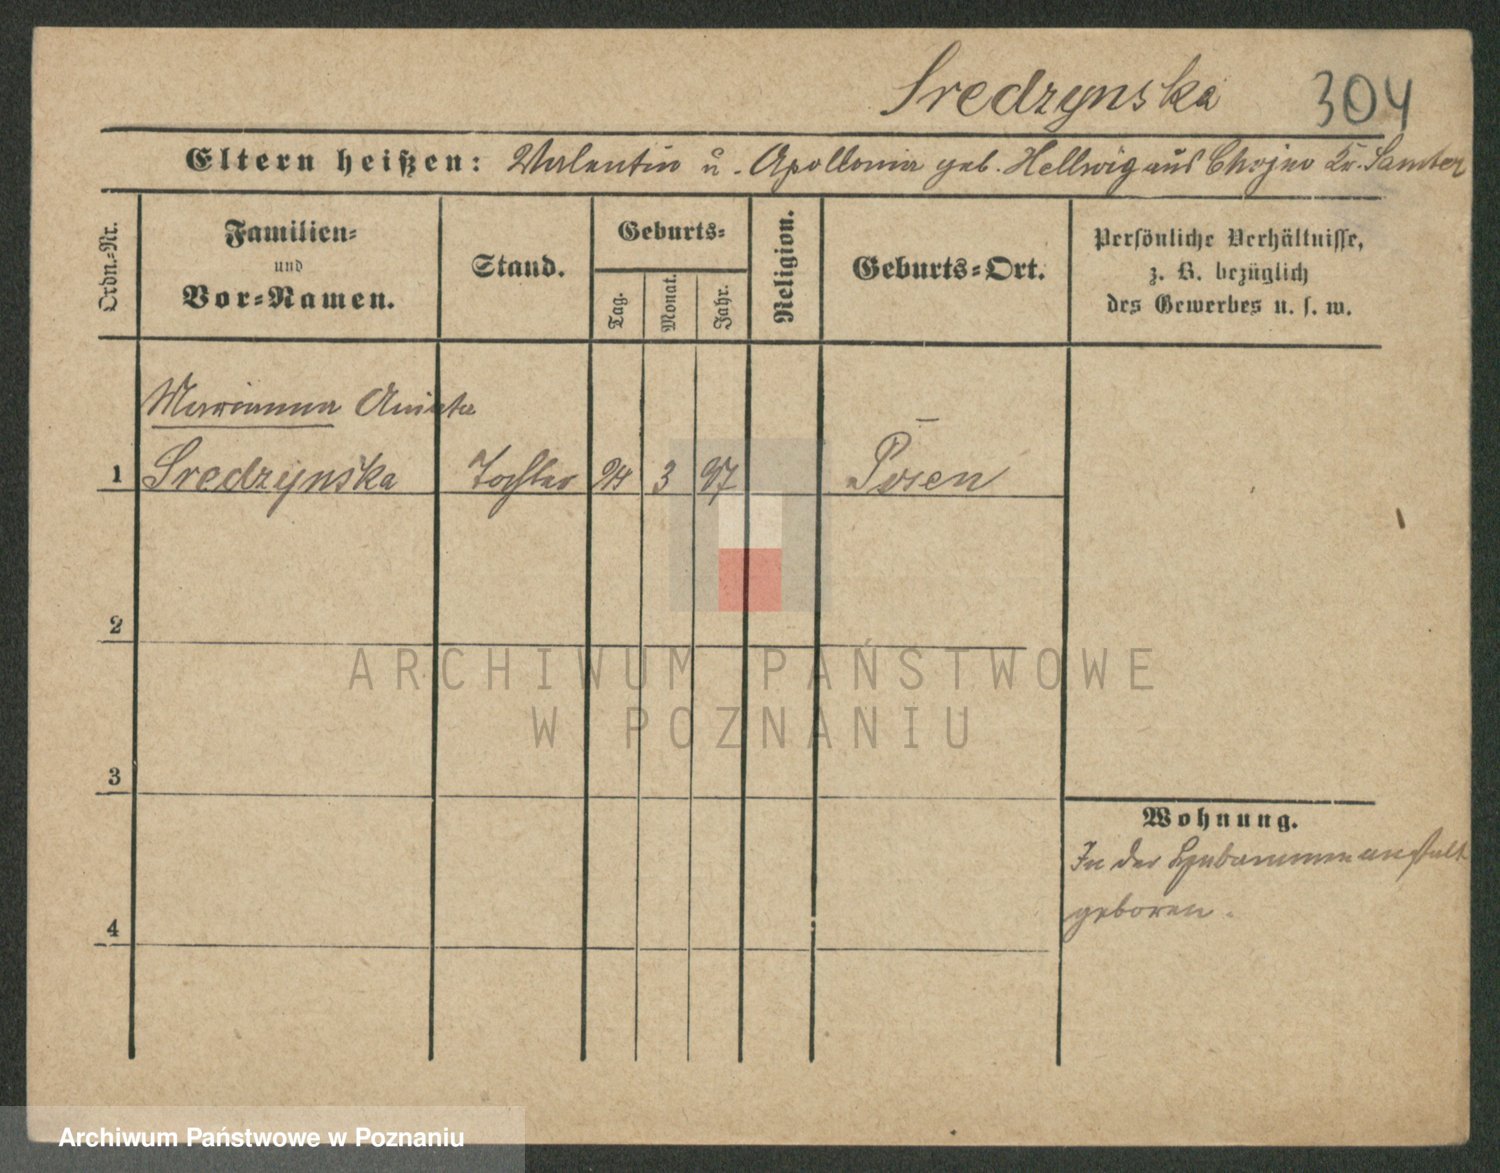 Sredzynska 304
Eltern heißen: Valentin u. Apollonia geb. Hellwig aus Chojno Kr. Samter
Ordn.-Nr.
Familien-
und
Vor-Namen.
Stand.
Geburts-
Tag.
Monat.
Jahr.
Religion.
Geburts-Ort.
Persönliche Verhältnisse,
z. B. bezüglich
des Gewerbes u. s. w.
Marianna Aniela
1 Sredzynska Tochter 24 3 97 Posen
2
3
4
Wohnung.
In der Hebammenanstalt
geboren.
ARCHIWUM PAŃSTWOWE
W POZNANIU
Archiwum Państwowe w Poznaniu